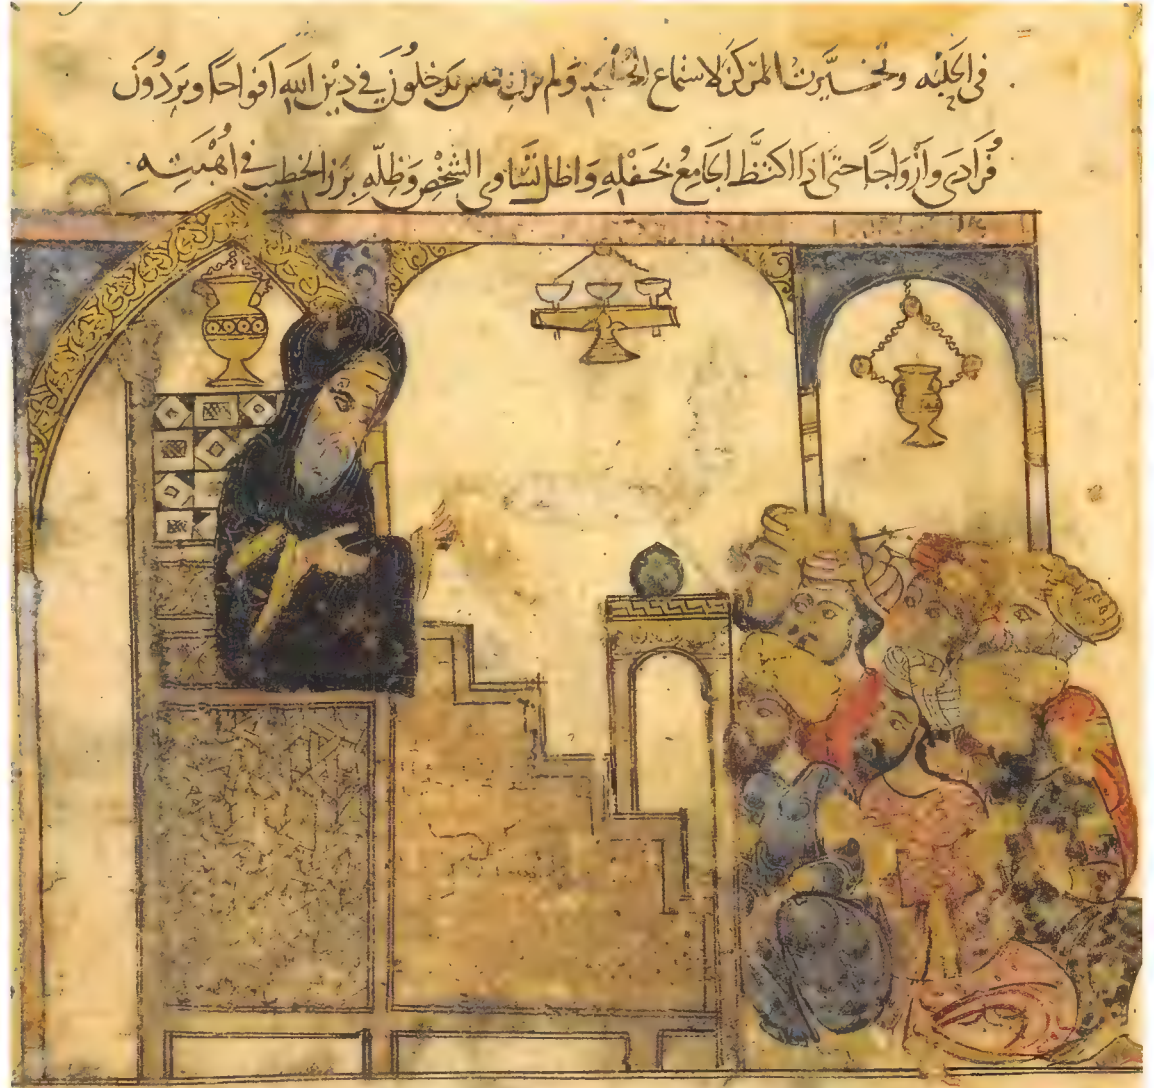 في الحلبه وتخيرت المركز لاستماع الخطبه ولم يزل الناس يدخلون في دين الله افواجا ويردون
فرادى وأزواجا حتى اذا اكتظ الجامع بحفله واظل تساوي الشخص وظله برز الخطيب في أهبته